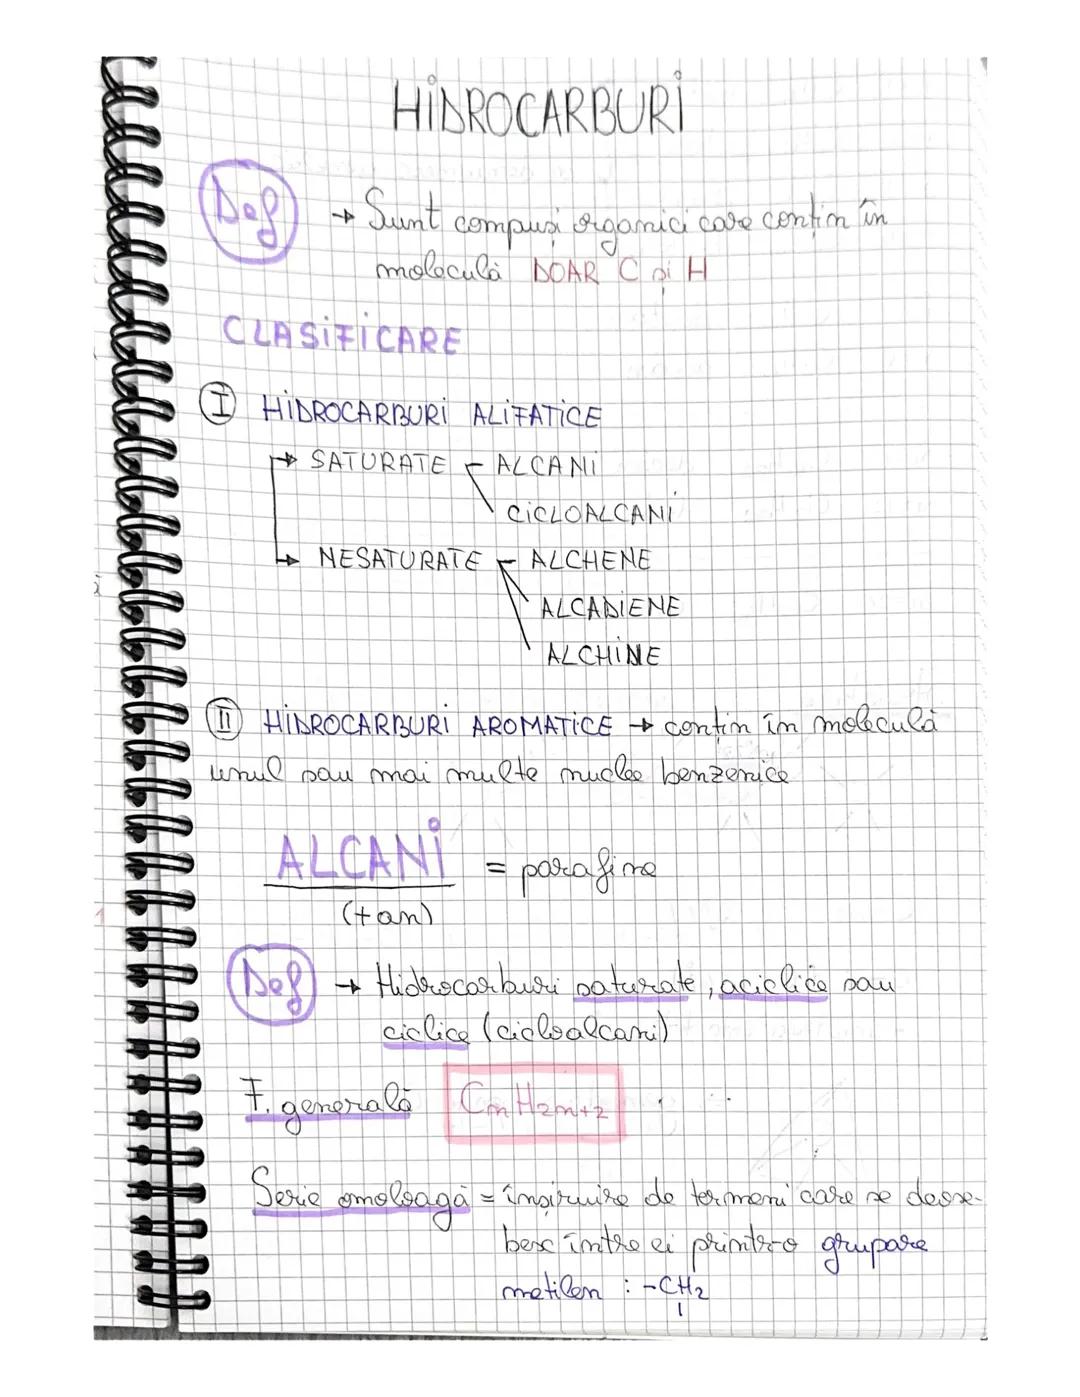 HIDROCARBURI
Def → Sunt compuși organici care conțin în
moleculă DOAR C și H
CLASIFICARE
I HIDROCARBURI ALIFATICE
→ SATURATE - ALCANI
CICLOALCANI
→ NESATURATE - ALCHENE
ALCADIENE
ALCHINE
II HIDROCARBURI AROMATICE → conțin în moleculă
unul sau mai multe nuclee benzenice
ALCANI = parafine
(+an)
Def → Hidrocarburi saturate, aciclice sau
ciclice (cicloalcani)
F. generală CnH2n+2
Serie omoloagă = înșiruire de termeni care se deose-
besc între ei printr-o grupare
metilen : -CH2